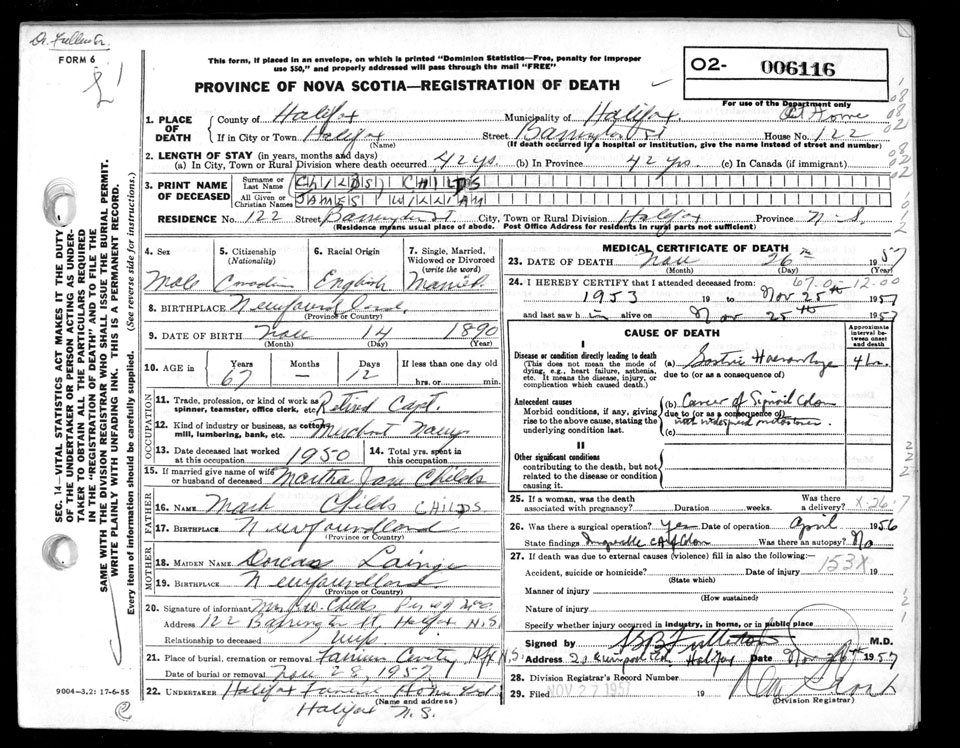 Dr. Fullerton
FORM 6
This form, if placed in an envelope, on which is printed "Dominion Statistics—Free, penalty for improper
use $50," and properly addressed will pass through the mail "FREE"
O2- 006116
PROVINCE OF NOVA SCOTIA—REGISTRATION OF DEATH
For use of the Department only
1. PLACE OF DEATH
County of Halifax Municipality of Halifax At Home
If in City or Town Halifax Street Barrington St House No. 122
(Name) (If death occurred in a hospital or institution, give the name instead of street and number)
2. LENGTH OF STAY (in years, months and days)
(a) In City, Town or Rural Division where death occurred 42 yrs. (b) In Province 42 yrs (c) In Canada (if immigrant)
3. PRINT NAME OF DECEASED
Surname or Last Name (CHILDS) CHILDS
All Given or Christian Names JAMES WILLIAM
RESIDENCE No. 122 Street Barrington St City, Town or Rural Division Halifax Province N-S.
(Residence means usual place of abode. Post Office Address for residents in rural parts not sufficient)
4. Sex Male
5. Citizenship (Nationality) Canadian
6. Racial Origin English
7. Single, Married, Widowed or Divorced (write the word) Married
8. BIRTHPLACE Newfoundland.
(Province or Country)
9. DATE OF BIRTH Nov 14 1890
(Month) (Day) (Year)
10. AGE in Years 67 Months — Days 12 If less than one day hrs. or min.
OCCUPATION
11. Trade, profession or kind of work as spinner, teamster, office clerk, etc. Retired Capt.
12. Kind of industry or business, as cotton mill, lumbering, bank, etc. Merchant Navy
13. Date deceased last worked at this occupation 1950
14. Total yrs. spent in this occupation
15. If married give name of wife or husband of deceased Martha Jane Childs
FATHER
16. NAME Mark Childs CHILDS
17. BIRTHPLACE Newfoundland
(Province or Country)
MOTHER
18. MAIDEN NAME Dorcas Lainge
19. BIRTHPLACE Newfoundland
(Province or Country)
20. Signature of informant Mrs Childs
Address 122 Barrington St, Halifax N.S.
Relationship to deceased Wife
21. Place of burial, cremation or removal Hfx N.S.
Date of burial or removal Nov 28, 1957
22. UNDERTAKER Halifax Funeral Home Ltd
(Name and address)
Halifax N.S.
MEDICAL CERTIFICATE OF DEATH
23. DATE OF DEATH Nov 26th 1957
(Month) (Day) (Year)
24. I HEREBY CERTIFY that I attended deceased from:
1953 19 to Nov 25th 1957
and last saw him alive on Nov 25th 1957
CAUSE OF DEATH
Approximate interval between onset and death
I
Disease or condition directly leading to death
(This does not mean the mode of dying, e.g., heart failure, asthenia, etc. It means the disease, injury, or complication which caused death.)
(a) Gastric Haemorrhage 4 hr.
due to (or as a consequence of)
Antecedent causes
Morbid conditions, if any, giving rise to the above cause, stating the underlying condition last.
(b) Cancer of Sigmoid Colon
due to (or as a consequence of)
with widespread metastases.
(c)
II
Other significant conditions
contributing to the death, but not related to the disease or condition causing it.
25. If a woman, was the death associated with pregnancy? Duration weeks. Was there a delivery? X-26-7
26. Was there a surgical operation? Yes Date of operation April 1956
State findings Inoperable CA of Colon Was there an autopsy? No
27. If death was due to external causes (violence) fill in also the following:—
Accident, suicide or homicide? Date of injury 19
(State which) 153X
Manner of injury
(How sustained)
Nature of injury
Specify whether injury occurred in industry, in home, or in public place
Signed by B Fullerton M.D.
Address Halifax Date Nov 26th 1957
28. Division Registrar's Record Number
29. Filed NOV 27 1957 19
(Division Registrar)
SEC. 14—VITAL STATISTICS ACT MAKES IT THE DUTY
OF THE UNDERTAKER OR PERSON ACTING AS UNDER-
TAKER TO OBTAIN ALL THE PARTICULARS REQUIRED
IN THE "REGISTRATION OF DEATH" AND TO FILE THE
SAME WITH THE DIVISION REGISTRAR WHO SHALL ISSUE THE BURIAL PERMIT.
WRITE PLAINLY WITH UNFADING INK. THIS IS A PERMANENT RECORD.
Every item of information should be carefully supplied. (See reverse side for instructions.)
9004—3.2: 17-6-55